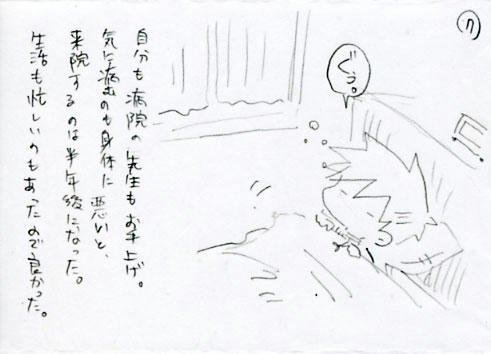 ⑦
ぐぅ。
自分も病院の先生もお手上げ。
気に病むのも身体に悪いと、
来院するのは半年後になった。
生活も忙しいのもあったので良かった。